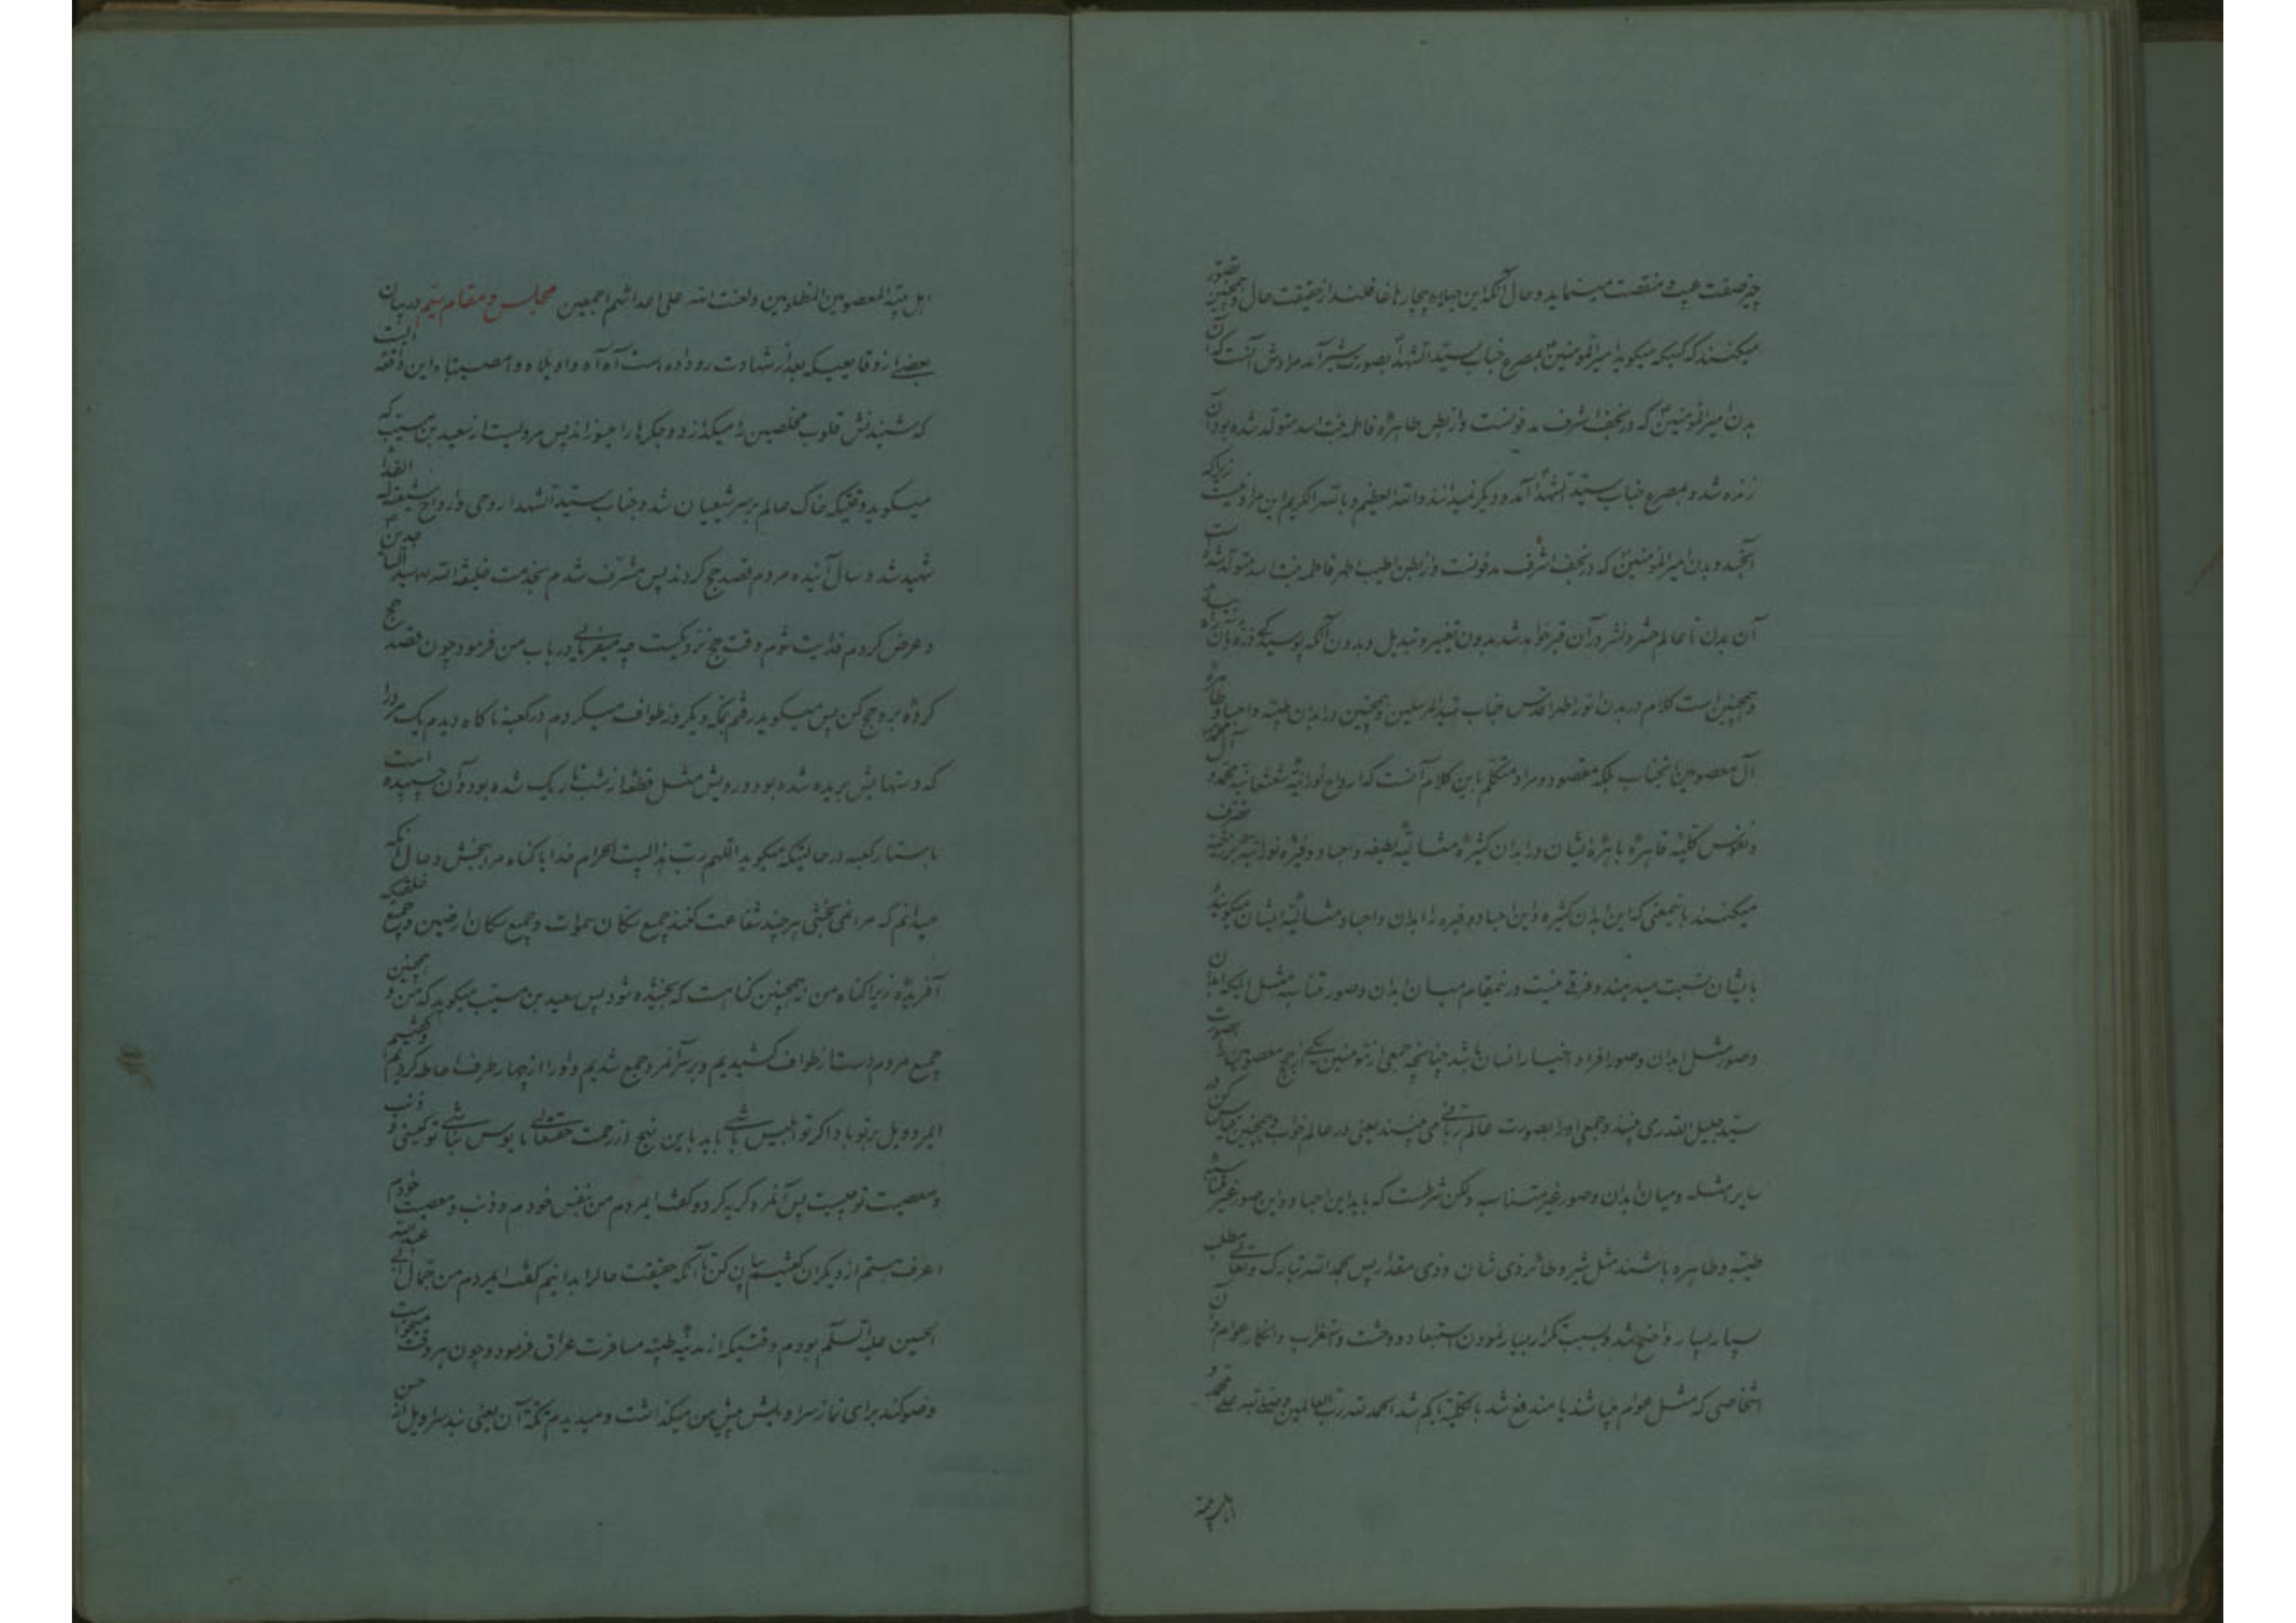 چیز صفت عیب و منقصت مینماید و حال آنکه این جهلاء بیچارها غافلند از حقیقت حال و همچنین تصور
میکنند که کسیکه میکوید امیرالمومنین بمصرع جناب سید الشهدا بصورت شیر آمد مرادش آنست که آن
بدن امیرالمومنین که در نجف اشرف مدفونست و از بطن طاهرهٔ فاطمه بنت اسد متولد شده بود آن
زنده شد و بمصرع جناب سید الشهدا آمد و دیکر نمیدانند والله العظیم و بالله الکریم این مراد نیست زیرا که
آنجسد و بدن امیرالمومنین که در نجف اشرف مدفونست و از بطن اطیب اطهر فاطمه بنت اسد متولد شده است
آن بدن تا عالم حشر و نشر در آن قبر خواهد شد بدون تغییر و تبدیل و بدون آنکه پوسیدکی ذرهٔ بآن راه
و همچنین است کلام در بدن انور اطهر اقدس جناب سید المرسلین و همچنین در ابدان طیبه و اجساد طاهره
آل معصومین انجناب بلکه مقصود و مراد متکلم باین کلام آنست که ارواح نورانیه شعشعانیه محمد و آل محمد
و نفوس کلیهٔ قاهرهٔ باهرهٔ ایشان در ابدان کثیرهٔ مثالیهٔ لطیفه و اجساد وفیرهٔ نورانیه شریفه تصرف
میکنند باینمعنی که این ابدان کثیره و این اجساد وفیره را ابدان و اجساد مثالیهٔ ایشان میکویند و
بایشان نسبت میدهند و فرقی نیست در نمقام میان ابدان و صور متناسبه مثل اینکه ابدان
و صور مثل ابدان و صور افراد اخیار انسان باشد چنانچه جمعی از مومنین یکی از حجج معصومین را بصورت
سید جلیل القدری بینند و جمعی او را بصورت عالم ربانی می بینند یعنی در عالم خواب و همچنین قیاس کن در
سایر امثله و میان ابدان و صور غیر متناسبه ولکن شرطست که باید این اجساد و این صور غیر متناسبه
طیبه و طاهره باشند مثل شیر و طائر ذی شان و ذی مقدار پس بحمد الله تبارک و تعالی مطلب
بسیار بسیار واضح شد و بسبب تکرار بسیار نمودن استبعاد و وحشت و استغراب و انکار عوام و آن
اشخاصی که مثل عوام میباشند یا مندفع شد بالکلیة یا کم شد الحمد لله رب العالمین و صلی الله علی محمد و
اهل بیته المعصومین المظلومین و لعنت الله علی اعدائهم اجمعین مجلس و مقام سیم در بیان
بعضی از وقایعیکه بعد از شهادت روداده است آه آه واویلاه وا مصیبتاه این واقعه ایست
که شنیدنش قلوب مخلصین را میکدازد و جکرها را میسوزاند پس مرویست از سعید بن مسیب که
میکوید وقتیکه خاک عالم بر سر شیعیان شد و جناب سید الشهدا روحی و ارواح شیعته له الفداء
شهید شد و سال آینده مردم قصد حج کردند پس مشرف شدم بخدمت خلیفة الله سید الساجدین
و عرض کردم فدایت شوم وقت حج نزدیکست چه میفرمایی در باب من فرمود چون قصد حج
کردهٔ برو حج کن پس میکوید رفتم بمکه و یکروز طواف میکردم در کعبه ناکاه دیدم یک مرد را
که دستهایش بریده شده بود و رویش مثل قطعهٔ از شب تاریک شده بود و آن چسپیده است
باستار کعبه در حالتیکه میکوید اللهم رب هذا البیت الحرام خدایا کناه مرا ببخش و حال آنکه
میدانم که مرا نمی بخشی هر چند شفاعت کنند جمیع سکان سموات و جمیع سکان ارضین و جمیع خلقیکه
آفریدهٔ زیرا کناه من نه همچنین کناهست که بخشیده شود پس سعید بن مسیب میکوید که من و همچنین
جمیع مردم دست از طواف کشیدیم و بر سر آنمرد جمع شدیم و او را از چهار طرف احاطه کردیم و کفتیم
ایمرد ویل بر تو باد اکر تو ابلیس باشی باید باین نهج از رحمت حقتعالی مایوس نباشی تو کیستی و ذنب
و معصیت تو چیست پس آنمرد کریه کرد و کفت ایمردم من بنفس خودم و ذنب و معصیت خودم
اعرف هستم از دیکران کفتیم بیان کن تا آنکه حقیقت حالرا بدانیم کفت ایمردم من جمال ابی عبدالله
الحسین علیه السلم بودم وقتیکه از مدینهٔ طیبه مسافرت عراق فرمود و چون هر وقت میخواست
وضو کند برای نماز سراویلش پیش من میکذاشت و میدیدم تکهٔ آن یعنی بند سراویل از حسن